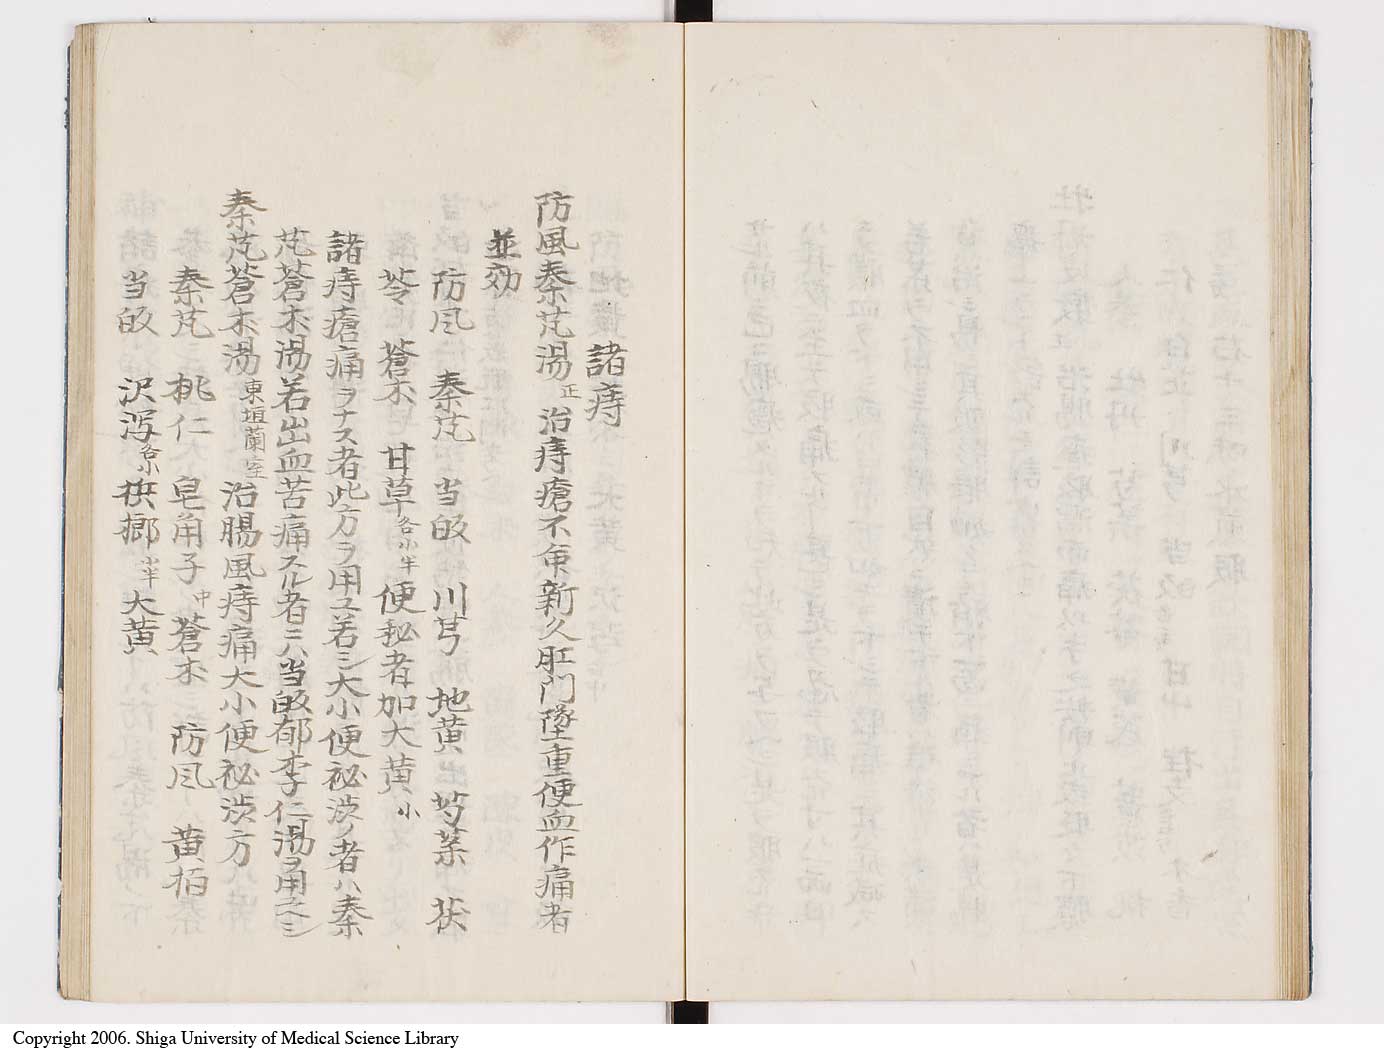 諸痔
防風秦芃湯 正 治痔瘡不痊新久肛門墜重便血作痛者
並効
防風 秦芃 当皈 川芎 地黄 芍薬 茯
苓 蒼朮 甘草各小半 便秘者加大黄小
諸痔瘡痛ヲナス者此方ヲ用ユ若シ大小便秘渋ノ者ハ秦
芃蒼朮湯若出血苦痛スル者ニハ当皈郁李仁湯ヲ用ユヘシ
秦芃蒼朮湯 東垣蘭室 治腸風痔痛大小便秘渋方
秦芃 桃仁 皂角子中 蒼朮 防風 黄柏
当皈 沢瀉各小 梹榔小半 大黄
Copyright 2006. Shiga University of Medical Science Library